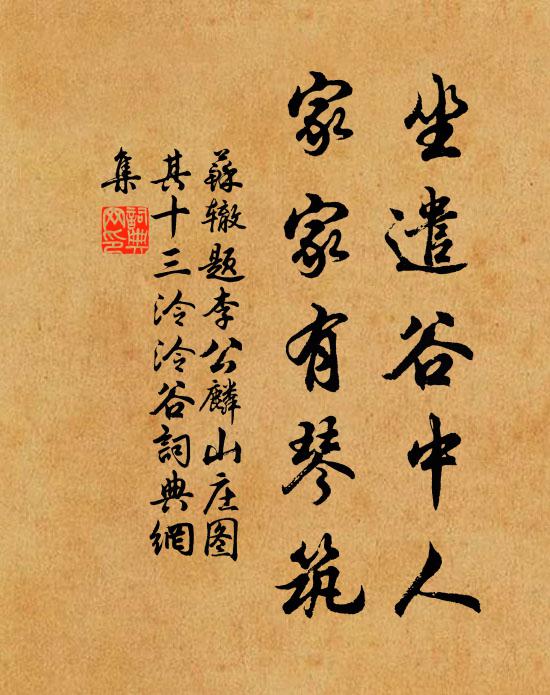 坐遣谷中人
家家有琴筑
蘇辙题李公麟山庄图
其十三泠泠谷詞典網
集
詞典
网印